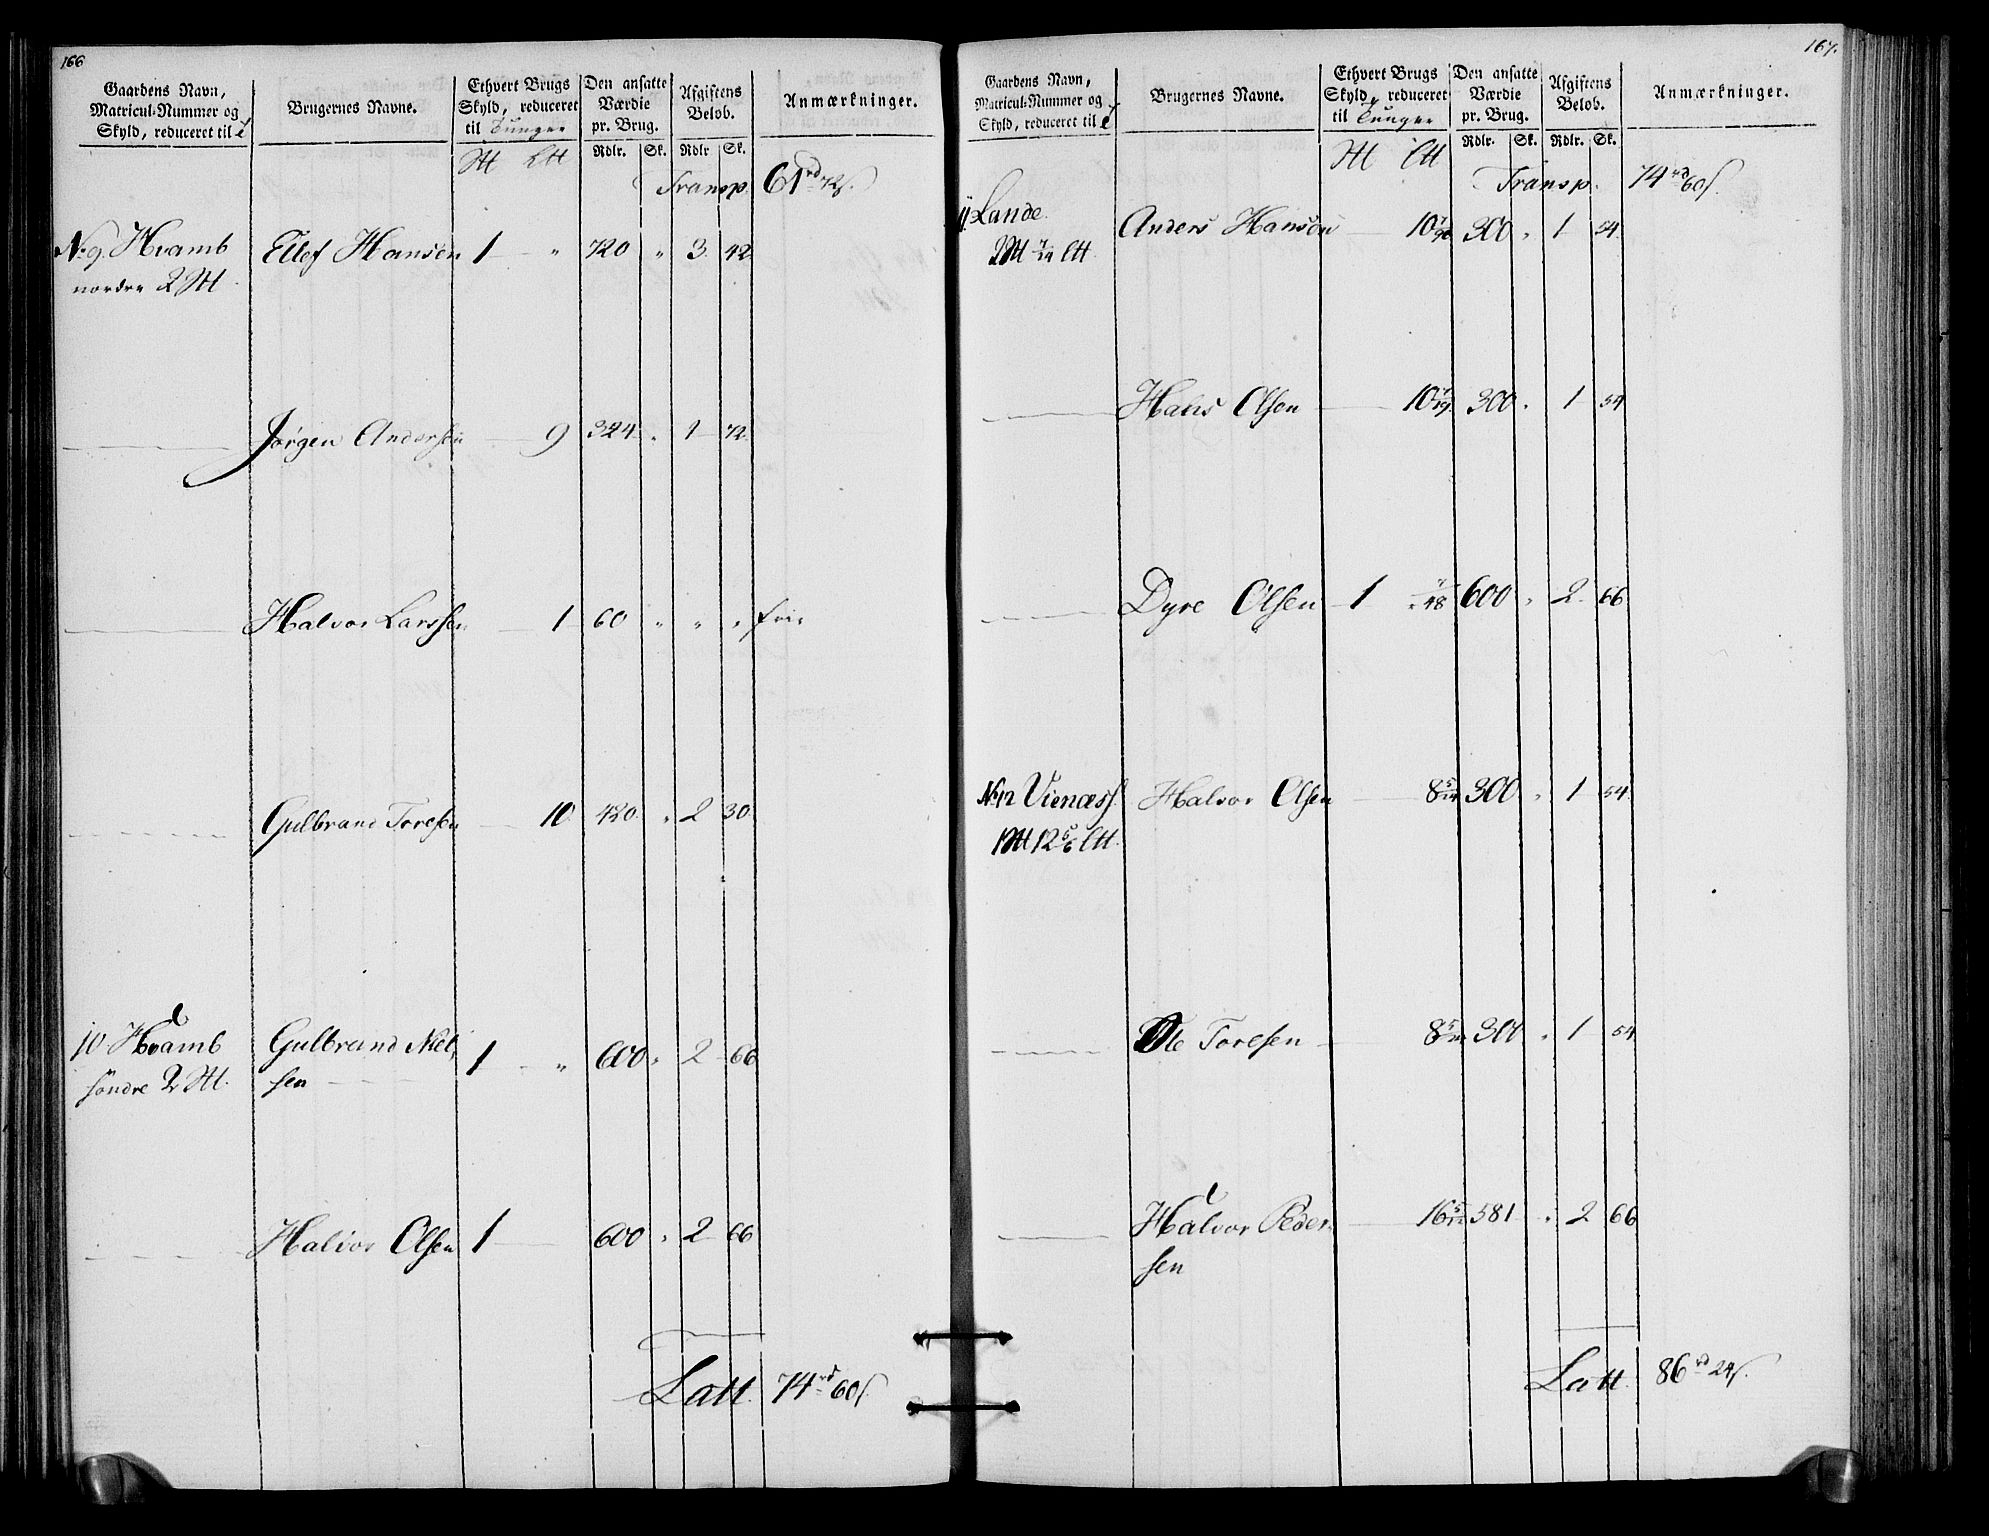 166
Gaardens Navn, Matricul-Nummer og Skyld, reduceret til
Brugernes Navne.
Ethvert Brugs Skyld, reduceret til Tunger
Den ansatte Værdie pr. Brug.
Afgiftens Beløb.
Anmærkninger.
Rdlr. Sk. Rdlr Sk.
Transp. 61 rd 72 s.
No 9. Hvamb Ellef Hansen 1 " 720 " 3 42
nordre 2
Jørgen Andersen 9 324 " 1 72
Halvor Larssen 1 60 " " " frie
Gulbrand Toresen 10 420 " 2 30
10 Hvamb Gulbrand Niel, 1 " 600 " 2 66
søndre 2 sen
Halvor Olsen 1 600 " 2 66
Latt 74 rd 60 s.
167.
Gaardens Navn, Matricul-Nummer og Skyld, reduceret til
Brugernes Navne.
Ethvert Brugs Skyld, reduceret til Tunger
Den ansatte Værdie pr. Brug.
Afgiftens Beløb.
Anmærkninger.
Rdlr. Sk. Rdlr. Sk.
Transp. 74 rd 60 s.
11 Lande Anders Hansen 10 300 " 1 54
Hans Olsen 10 300 " 1 54
Dyre Olsen 1 600 " 2 66
No 12 Vienæss. Halvor Olsen 8 300 " 1 54
1 12 5/6
Ole Toresen 8 " 1 54
Halvor Peder 16 581 " 2 66
sen
Latt 86 rd 24 s.